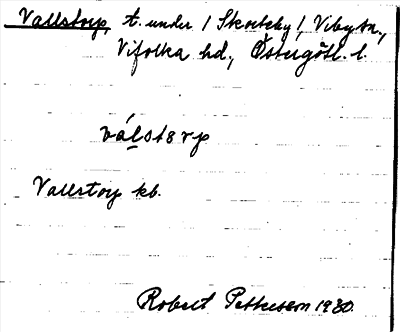 Vallstorp, t. under / Skorteby /, Viby sn.,
Vifolka hd., Östergötl. l.
válstɘrp
Vallstorp kb.
Robert Pettersson 1930.